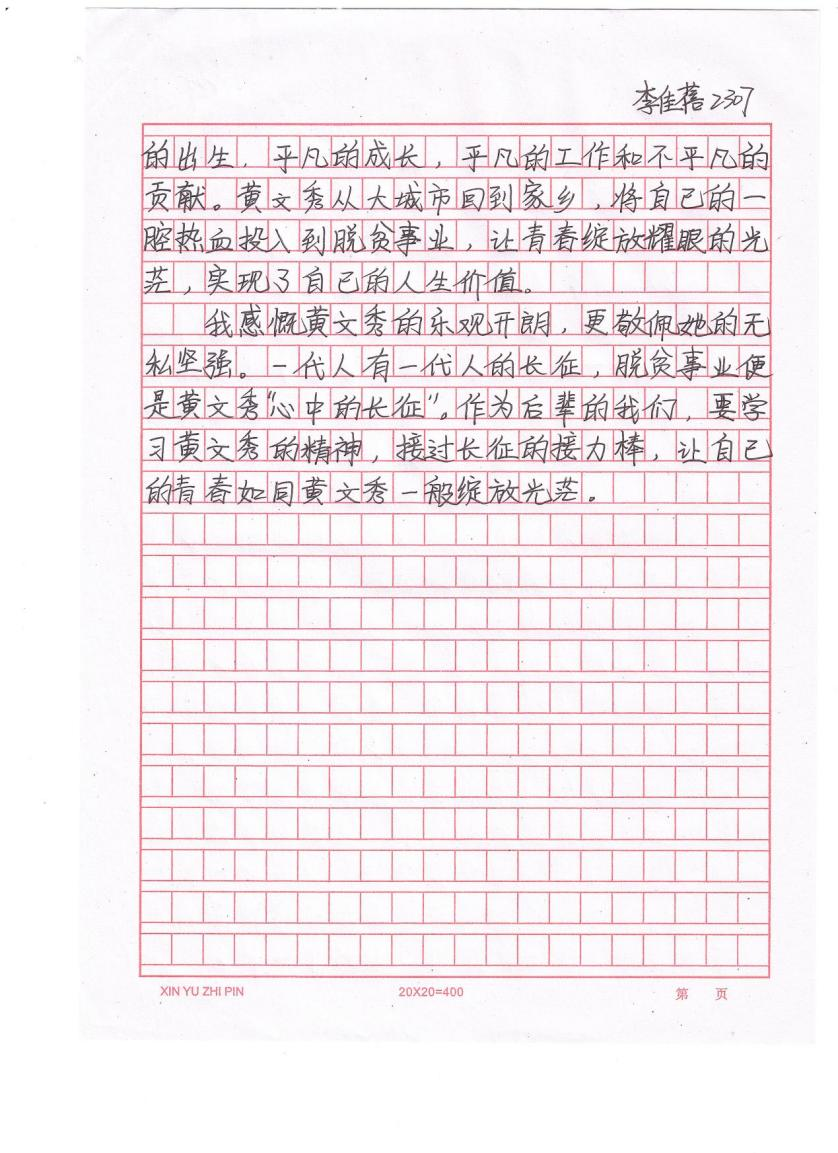 李佳蓓 2307
的出生，平凡的成长，平凡的工作和不平凡的
贡献。黄文秀从大城市回到家乡，将自己的一
腔热血投入到脱贫事业，让青春绽放耀眼的光
茫，实现了自己的人生价值。
我感慨黄文秀的乐观开朗，更敬佩她的无
私坚强。一代人有一代人的长征，脱贫事业便
是黄文秀“心中的长征”。作为后辈的我们，要学
习黄文秀的精神，接过长征的接力棒，让自己
的青春如同黄文秀一般绽放光茫。
XIN YU ZHI PIN 20X20=400 第 页